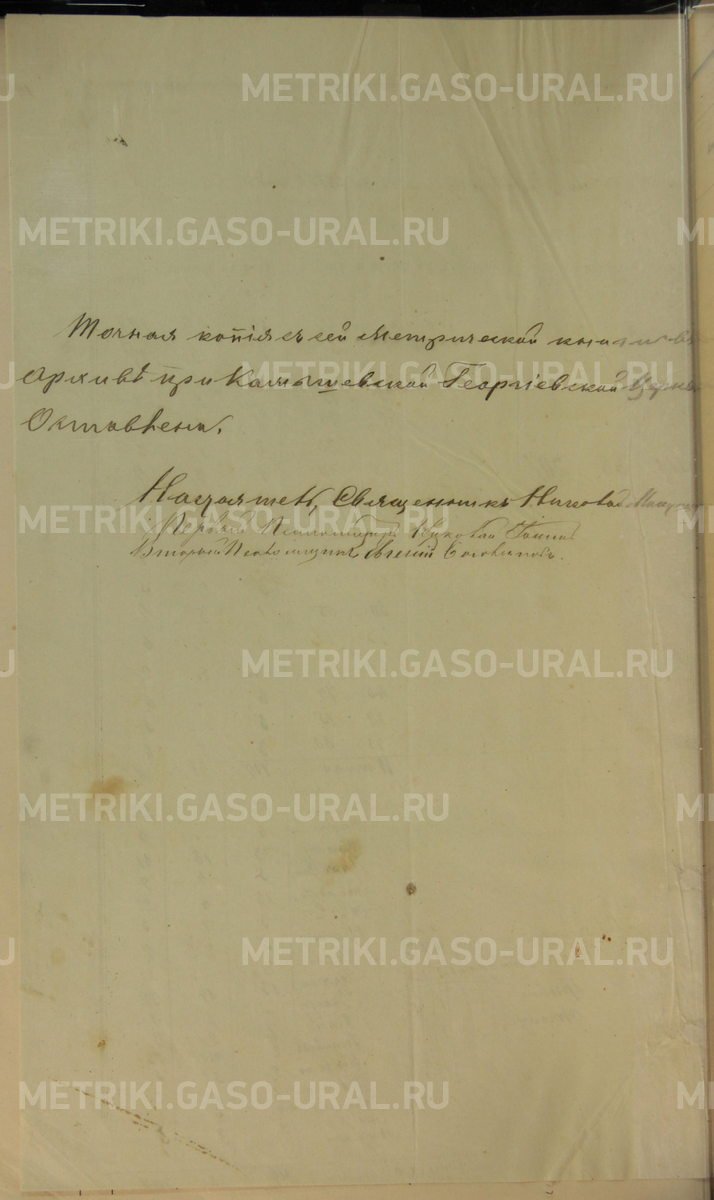 METRIKI.GASO-URAL.RU
METRIKI.GASO-URAL.RU
Точная копія съ сей метрической книги въ
METRIKI.GASO-URAL.RU
Архивѣ при Камышевской Георгіевской
Оставлена.
METRIKI.GASO-URAL.RU
Настоятель, Священникъ Николай
Первый Псаломщикъ
Второй Псаломщикъ Евгеній
METRIKI.GASO-URAL.RU
METRIKI.GASO-URAL.RU
METRIKI.GASO-URAL.RU
METRIKI.GASO-URAL.RU